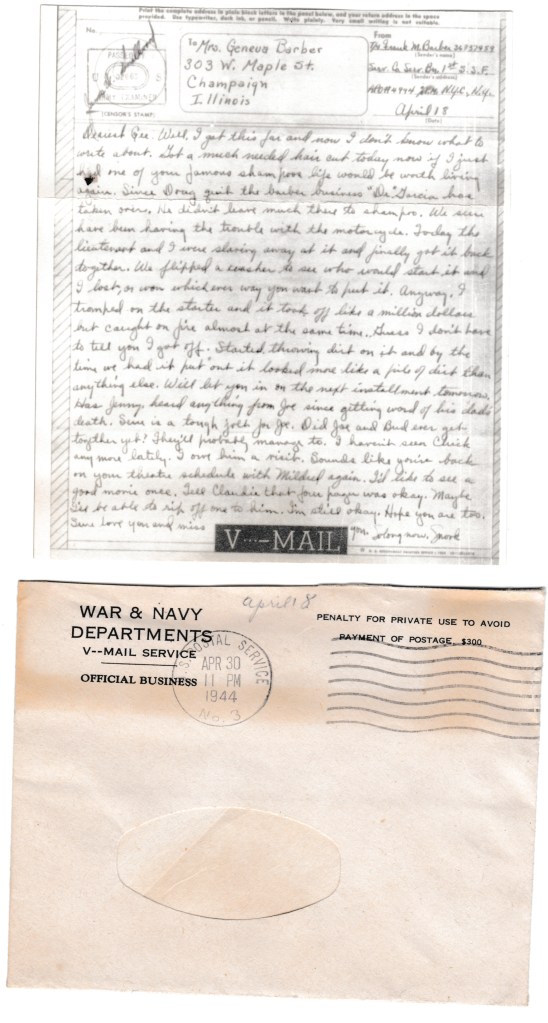 Print the complete address in plain block letters in the panel below, and your return address in the space
provided. Use typewriter, dark ink, or pencil. Write plainly. Very small writing is not suitable.
No.
(CENSOR'S STAMP)
To Mrs. Geneva Barber
303 W. Maple St.
Champaign
Illinois
From
Frank M. Barber
Serv. Co. Serv. Bn. 1st S.S.F.
(Sender's address)
N.Y.C., N.Y.
April 18
(Date)
Dearest Gee. Well, I got this far and now I don't know what to
write about. Got a much needed hair cut today now if I just
had one of your famous shampoos life would be worth living
again. Since Doug quit the barber business "Dr." Garcia has
taken over. He didn't leave much there to shampoo. We sure
have been having the trouble with the motorcycle. Today the
lieutenant and I were slaving away at it and finally got it back
together. We flipped a to see who would start it and
I lost, or won which ever way you want to put it. Anyway, I
tromped on the starter and it took off like a million dollars
but caught on fire almost at the same time. Guess I don't have
to tell you I got off. Started throwing dirt on it and by the
time we had it put out it looked more like a pile of dirt than
anything else. We'll let you in on the next installment tomorrow.
Has Jenny heard anything from Joe since getting word of his dad's
death. Sure is a tough for Joe. Did Joe and Bud ever get
together yet? They'll probably manage to. I haven't seen Chick
any more lately. I owe him a visit. Sounds like you're back
on your theatre schedule with Mildred again. I'd like to see a
good movie once. Tell Claudia that four pager was okay. Maybe
I'll be able to rip off one to him. I'm still okay. Hope you are too.
Sure love you and miss you. So long now.
V···—MAIL
WAR & NAVY
DEPARTMENTS
V--MAIL SERVICE
OFFICIAL BUSINESS
April 18
U.S. POSTAL SERVICE
APR 30
11 PM
1944
No. 3
PENALTY FOR PRIVATE USE TO AVOID
PAYMENT OF POSTAGE, $300